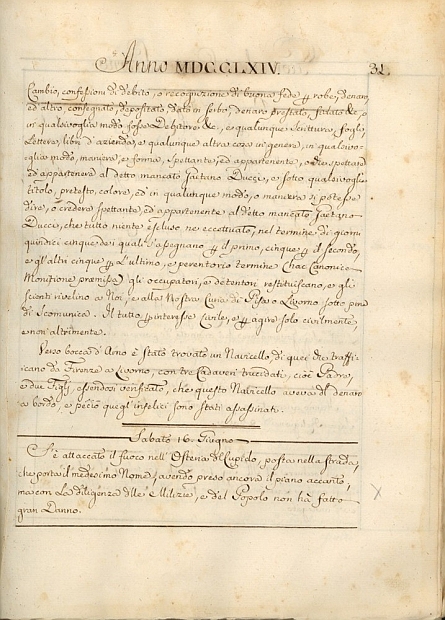 Anno MDCCLXIV. 31
Cambio, confessioni di debito, o recognizione di buona fede p robe, denari,
ed altro consegnato, depositato, dato in serbo, denaro prestato, fidato &c, o
in qualsivoglia modo fosse Debitore &c., e qualunque Scrittura, fogli,
Lettere, libri d'azienda, e qualunque altra cosa in genere, in qualsivo-
glia modo, maniera, e forma, spettante, ed appartenente, o che spettare
ed appartenere al detto mancato Gaetano Ducci, e sotto qualsivoglia
titolo, pretesto, colore, ed in qualunque modo, o maniera si potesse
dire, o credere spettante, ed appartenente al detto mancato Gaetano
Ducci, che tutto niente escluso ne eccettuato, nel termine di giorni
quindici cinque dei quali s'assegnano p il primo, cinque p il secondo,
e gl'altri cinque p l'ultimo, e perentorio termine Chac Canonica
Monitione præmissa gli occupatori, e detentori restituiscano, e gli
scienti rivelino a Noi, e alla Nostra Curia di Pisa o Livorno sotto pena
di Scomunica. Il tutto p interesse civile, e p agire solo civilmente,
e non altrimente.
Verso bocca d'Arno è stato trovato un Navicello, di quei che traffi-
cano da Firenze a Livorno, con tre Cadaveri trucidati, cioè Padre,
e due Figli, essendosi verificato, che questo Navicello aveva del denaro
a bordo, e perciò quegl'infelici sono stati assassinati.
Sabato 16. Giugno
S'è attaccato il fuoco nell'Osteria del Cupido, posta nella strada,
che porta il medesimo Nome, avendo preso ancora il piano accanto,
ma con La diligenza delle Milizie, e del Popolo non ha fatto
gran Danno.